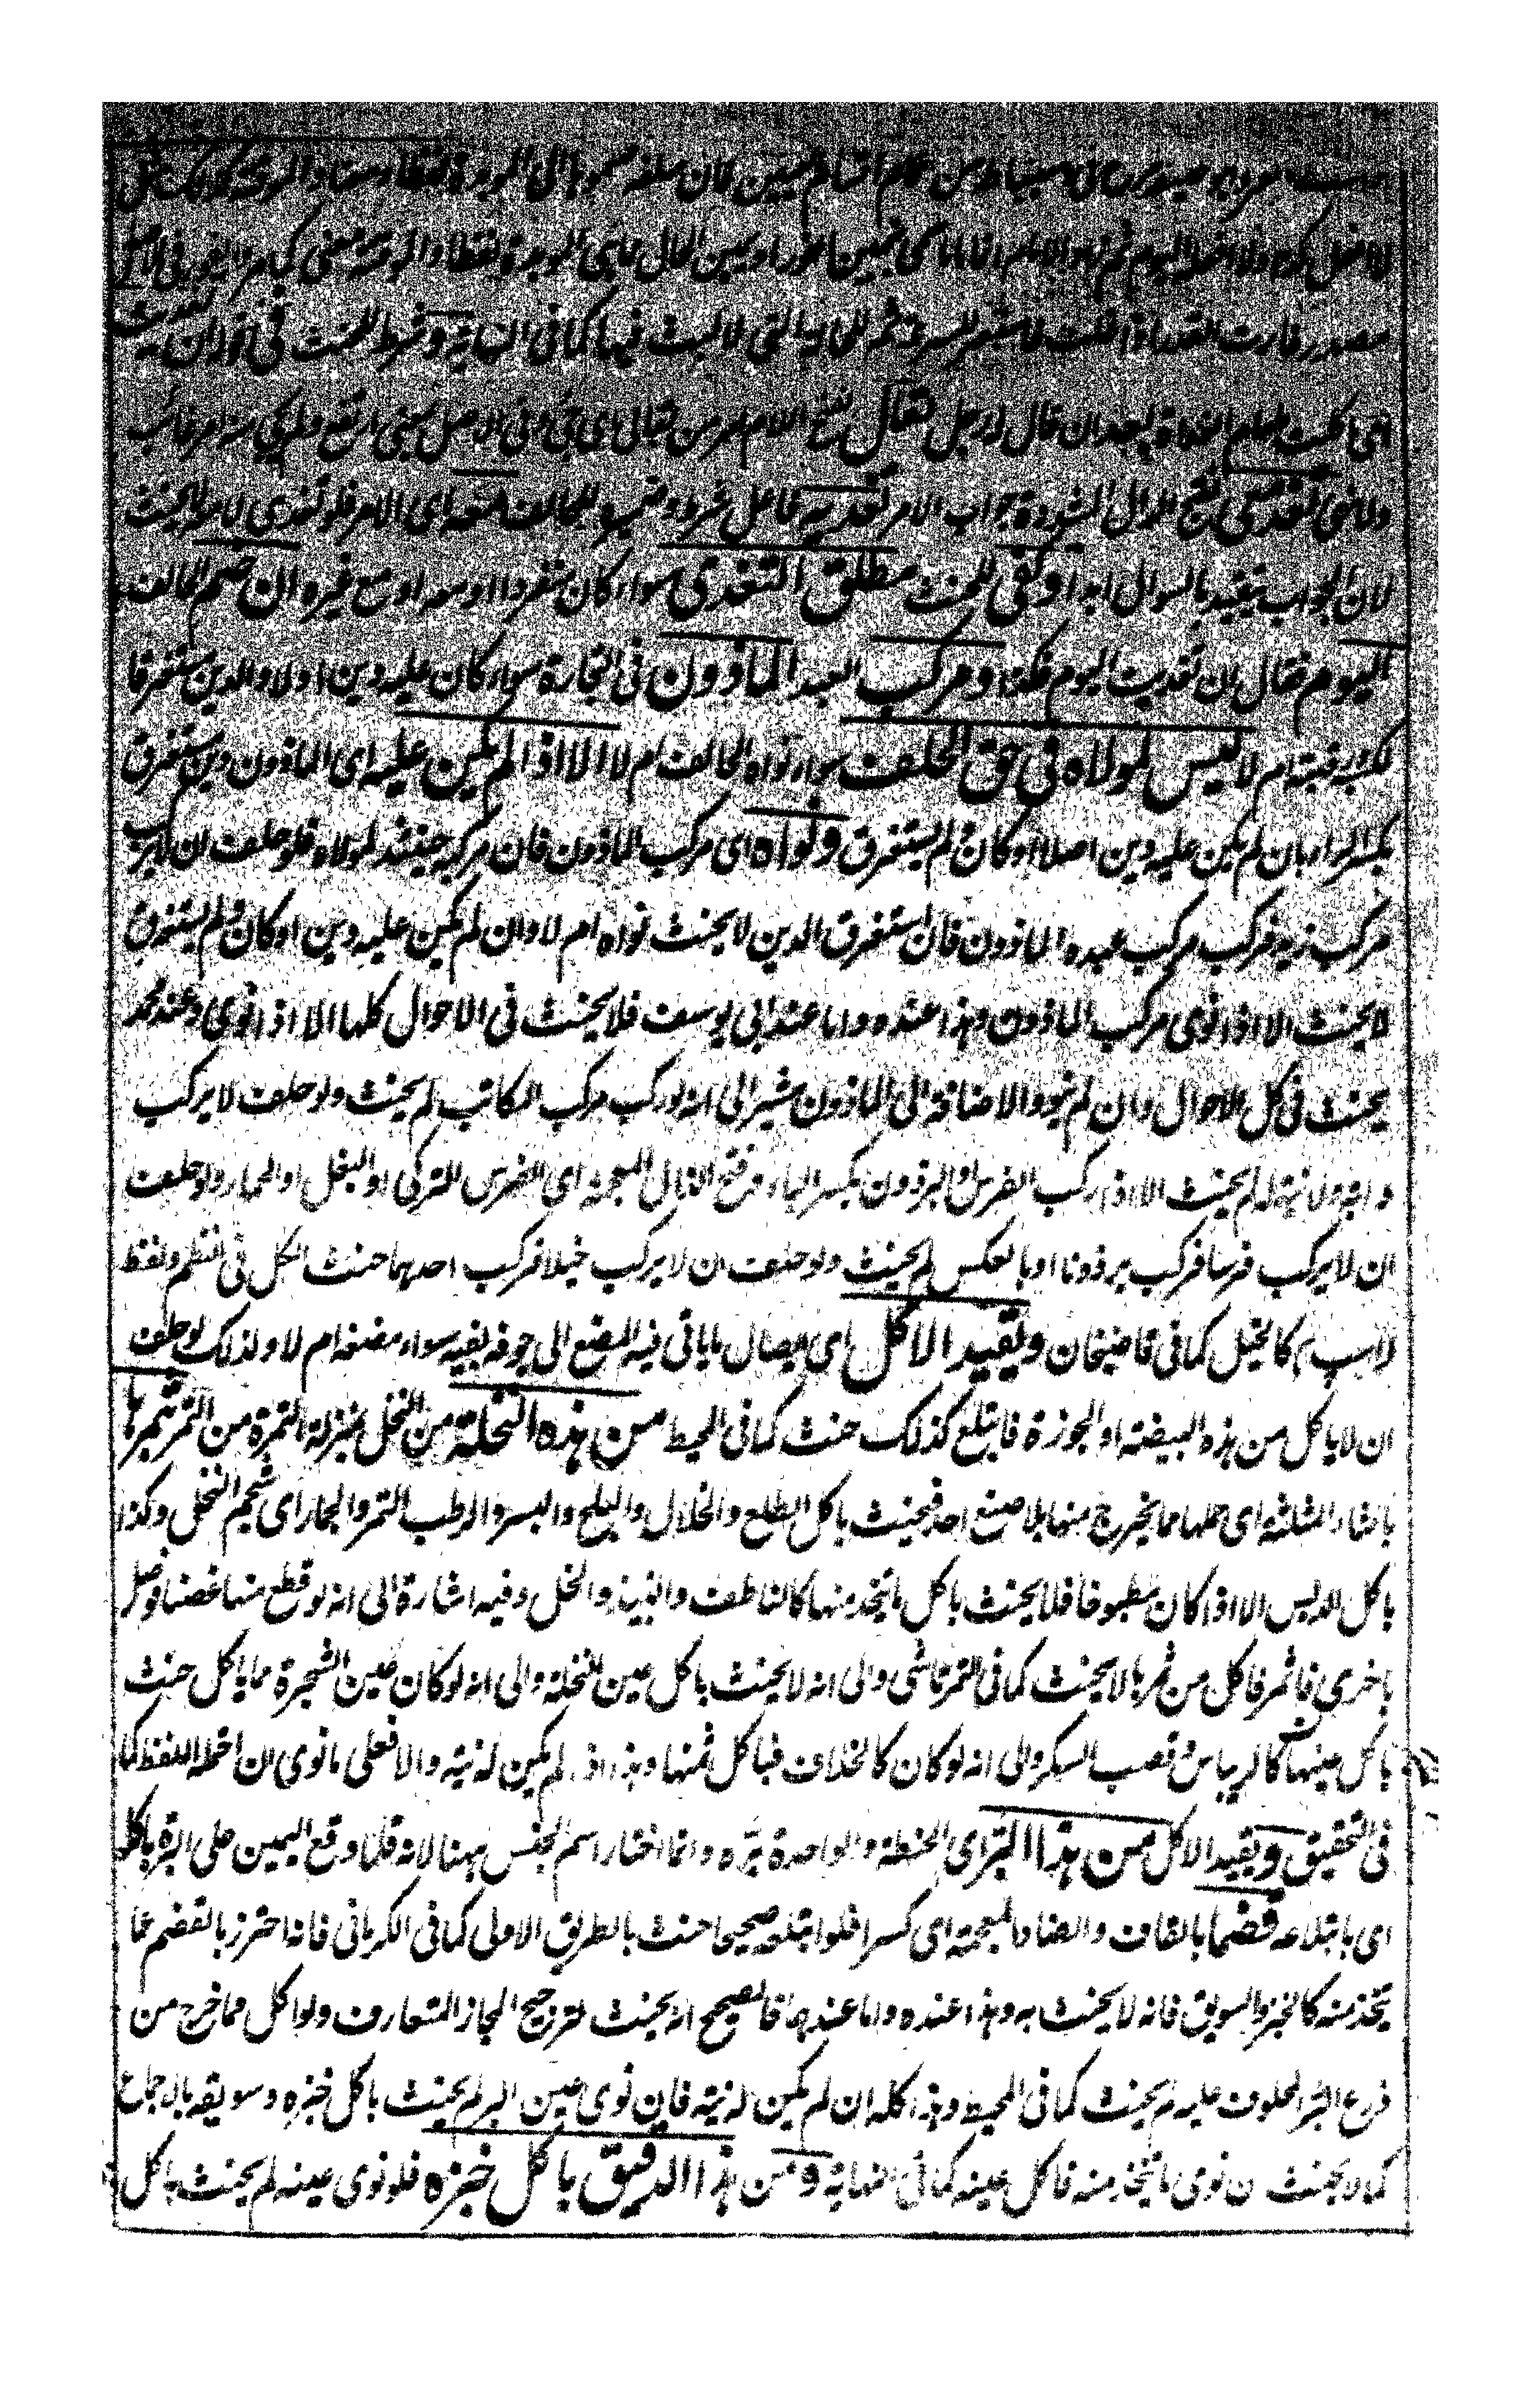 لا افعل كذا ولا افعل اليوم
مصدر فارت القدر اذا غلت فاستعير للسرعة ثم للحالة التي لا لبث فيها كما في النهاية وشرط للحنث في قوله ان تغديت
بعد ان قال له رجل تعال بفتح اللام امر من تعالى اي جئ وفي الاصل بمعنى ارتفع
تغد معي بفتح الدال المشددة جواب الامر تغديه فاعل شرط
لان الجواب يتقيد بالسوال ابدا وكفى للحنث مطلق التغدي سواء كان منفردا او معه او مع غيره ان ضم الحالف
اليوم فقال ان تغديت اليوم فكذا ومركب العبد الماذون في التجارة سواء كان عليه دين او لا والدين مستغرقا
لكسبه ورقبته ام لا ليس لمولاه في حق الحلف سواء نواه الحالف ام لا الا اذا لم يكن عليه اي الماذون دين مستغرق
بكسر الراء بان لم يكن عليه دين اصلا او كان لم يستغرق ونواه اي مركب الماذون فان مركبه حينئذ لمولاه فلو حلف ان لا يركب
مركب زيد فركب مركب عبده الماذون فان استغرق الدين لا يحنث نواه ام لا وان لم يكن عليه دين او كان ولم يستغرق
لا يحنث الا اذا نوى مركب الماذون وهذا عنده واما عند ابي يوسف فلا يحنث في الاحوال كلها الا اذا نوى وعند محمد
يحنث في كل الاحوال وان لم ينو والاضافة الى الماذون مشير الى انه لو ركب مركب المكاتب لم يحنث ولو حلف لا يركب
دابة ولا نية له لم يحنث الا اذا ركب الفرس والبرذون بكسر الباء وفتح الذال المعجمة اي الفرس التركي او البغل او الحمار ولو حلف
ان لا يركب فرسا فركب برذونا او بالعكس لم يحنث ولو حلف ان لا يركب خيلا فركب احدهما حنث الكل في النظم ولفظ
دابب كالخيل كما في قاضيخان ويقيد الاكل اي ايصال ما ياتي فيه المضغ الى جوفه بفيه سواء مضغه ام لا ولذلك لو حلف
ان لا ياكل من هذه البيضة او الجوزة فابتلع كذلك حنث كما في المحيط من هذه النخلة من النخل بمنزلة التمرة من التمر بثمرها
بالثاء المثلثة اي حملها مما يخرج منها بلا صنع احد فيحنث باكل الطلع والخلال والبلح والبسر والرطب التمر والجمار اي شحم النخل وكذا
باكل الدبس الا اذا كان مطبوخا فلا يحنث باكل ما يتخذ منها كالناطف والنبيذ والخل وفيه اشارة الى انه لو قطع منها غصنا وصل
باخرى فاثمر فاكل من ثمرها لا يحنث كما في التمرتاشي والى انه لا يحنث باكل عين النخلة والى انه لو كان عين الشجرة مما ياكل حنث
باكل عينها كالريباس وقصب السكر والى انه لو كان كالخلاف فباكل ثمنها وهذا اذا لم يكن له نية والا فعلى ما نوى ان احتمله اللفظ كما
في التحقيق ويقيد الاكل من هذا البر اي الحنطة والواحدة برة وانما اختار اسم الجنس ههنا لانه قلما وقع اليمين على البرة باكله
اي بابتلاعه قضما بالقاف والضاد المعجمة اي كسرا فلو ابتلعه صحيحا حنث بالطريق الاولى كما في الكرماني فانه احترز بالقضم عما
يتخذ منه كالخبز والسويق فانه لا يحنث به وهذا عنده واما عندهما فالصحيح انه يحنث لترجيح المجاز المتعارف ولو اكل مما خرج من
زرع البر المحلوف عليه لم يحنث كما في المحيط وهذا كله ان لم يكن له نية فان نوى عين البر لم يحنث باكل خبزه وسويقه بالاجماع
كما لا يحنث ان نوى ما يتخذ منه فاكل عينه كما في النهاية ومن هذا الدقيق باكل خبزه فلو نوى عينه لم يحنث باكل